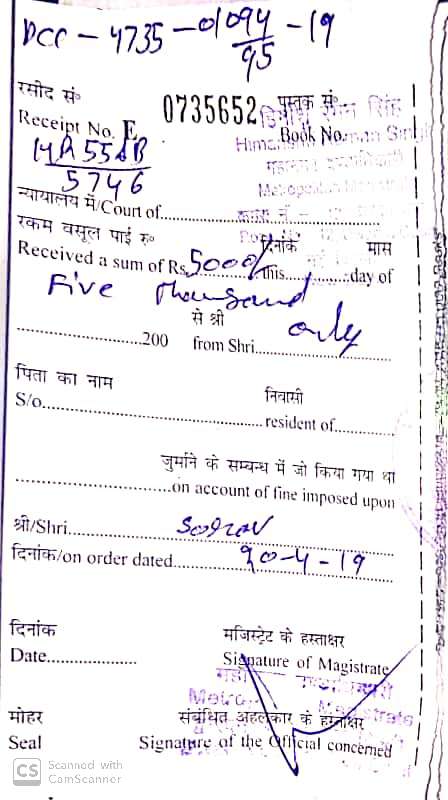 DCC - 4735 - 01094 - 19
95
रसीद सं०
0735652
पुस्तक सं०
Receipt No. E
Book No.
HR 55AB
5746
न्यायालय में/Court of
रकम वसूल पाई रु०
दिनांक मास
Received a sum of Rs. 5000/- this day of
Five Thousand only
से श्री
200 from Shri
पिता का नाम
निवासी
S/o
resident of
जुर्माने के सम्बन्ध में जो किया गया था
on account of fine imposed upon
श्री/Shri
दिनांक/on order dated 20-4-19
दिनांक
मजिस्ट्रेट के हस्ताक्षर
Date
Signature of Magistrate
मोहर
संबंधित अहलकार के हस्ताक्षर
Seal
Signature of the Official concerned
CS Scanned with
CamScanner